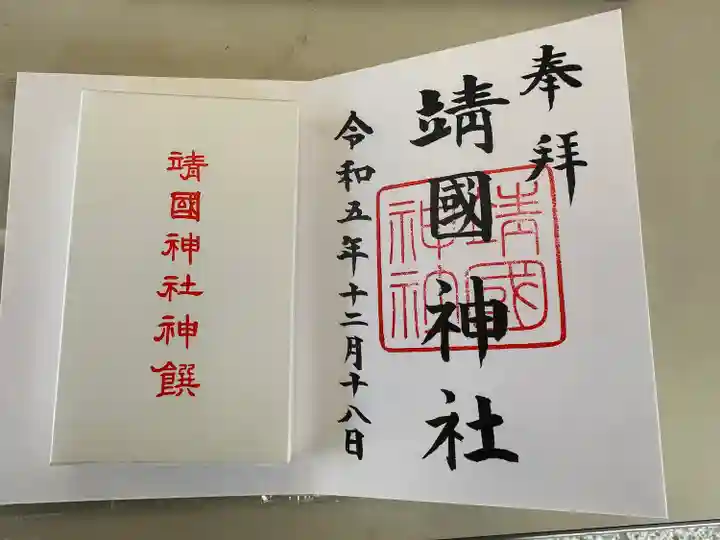 奉拝
靖國神社
靖國神社
令和五年十二月十八日
靖國神社神饌